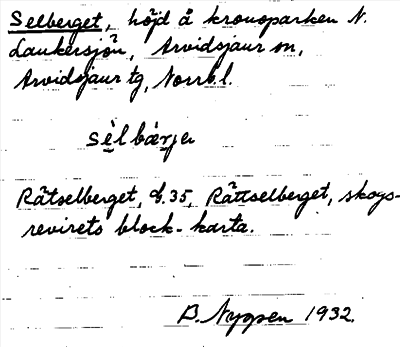 Selberget, höjd å kronoparken N.
Laukersjön, Arvidsjaur sn,
Arvidsjaur tg, Norrb.l.
sèlbærje
Råtselberget, bl.35, Råttselberget, skogs-
revirets block-karta.
B. Nygren 1932.